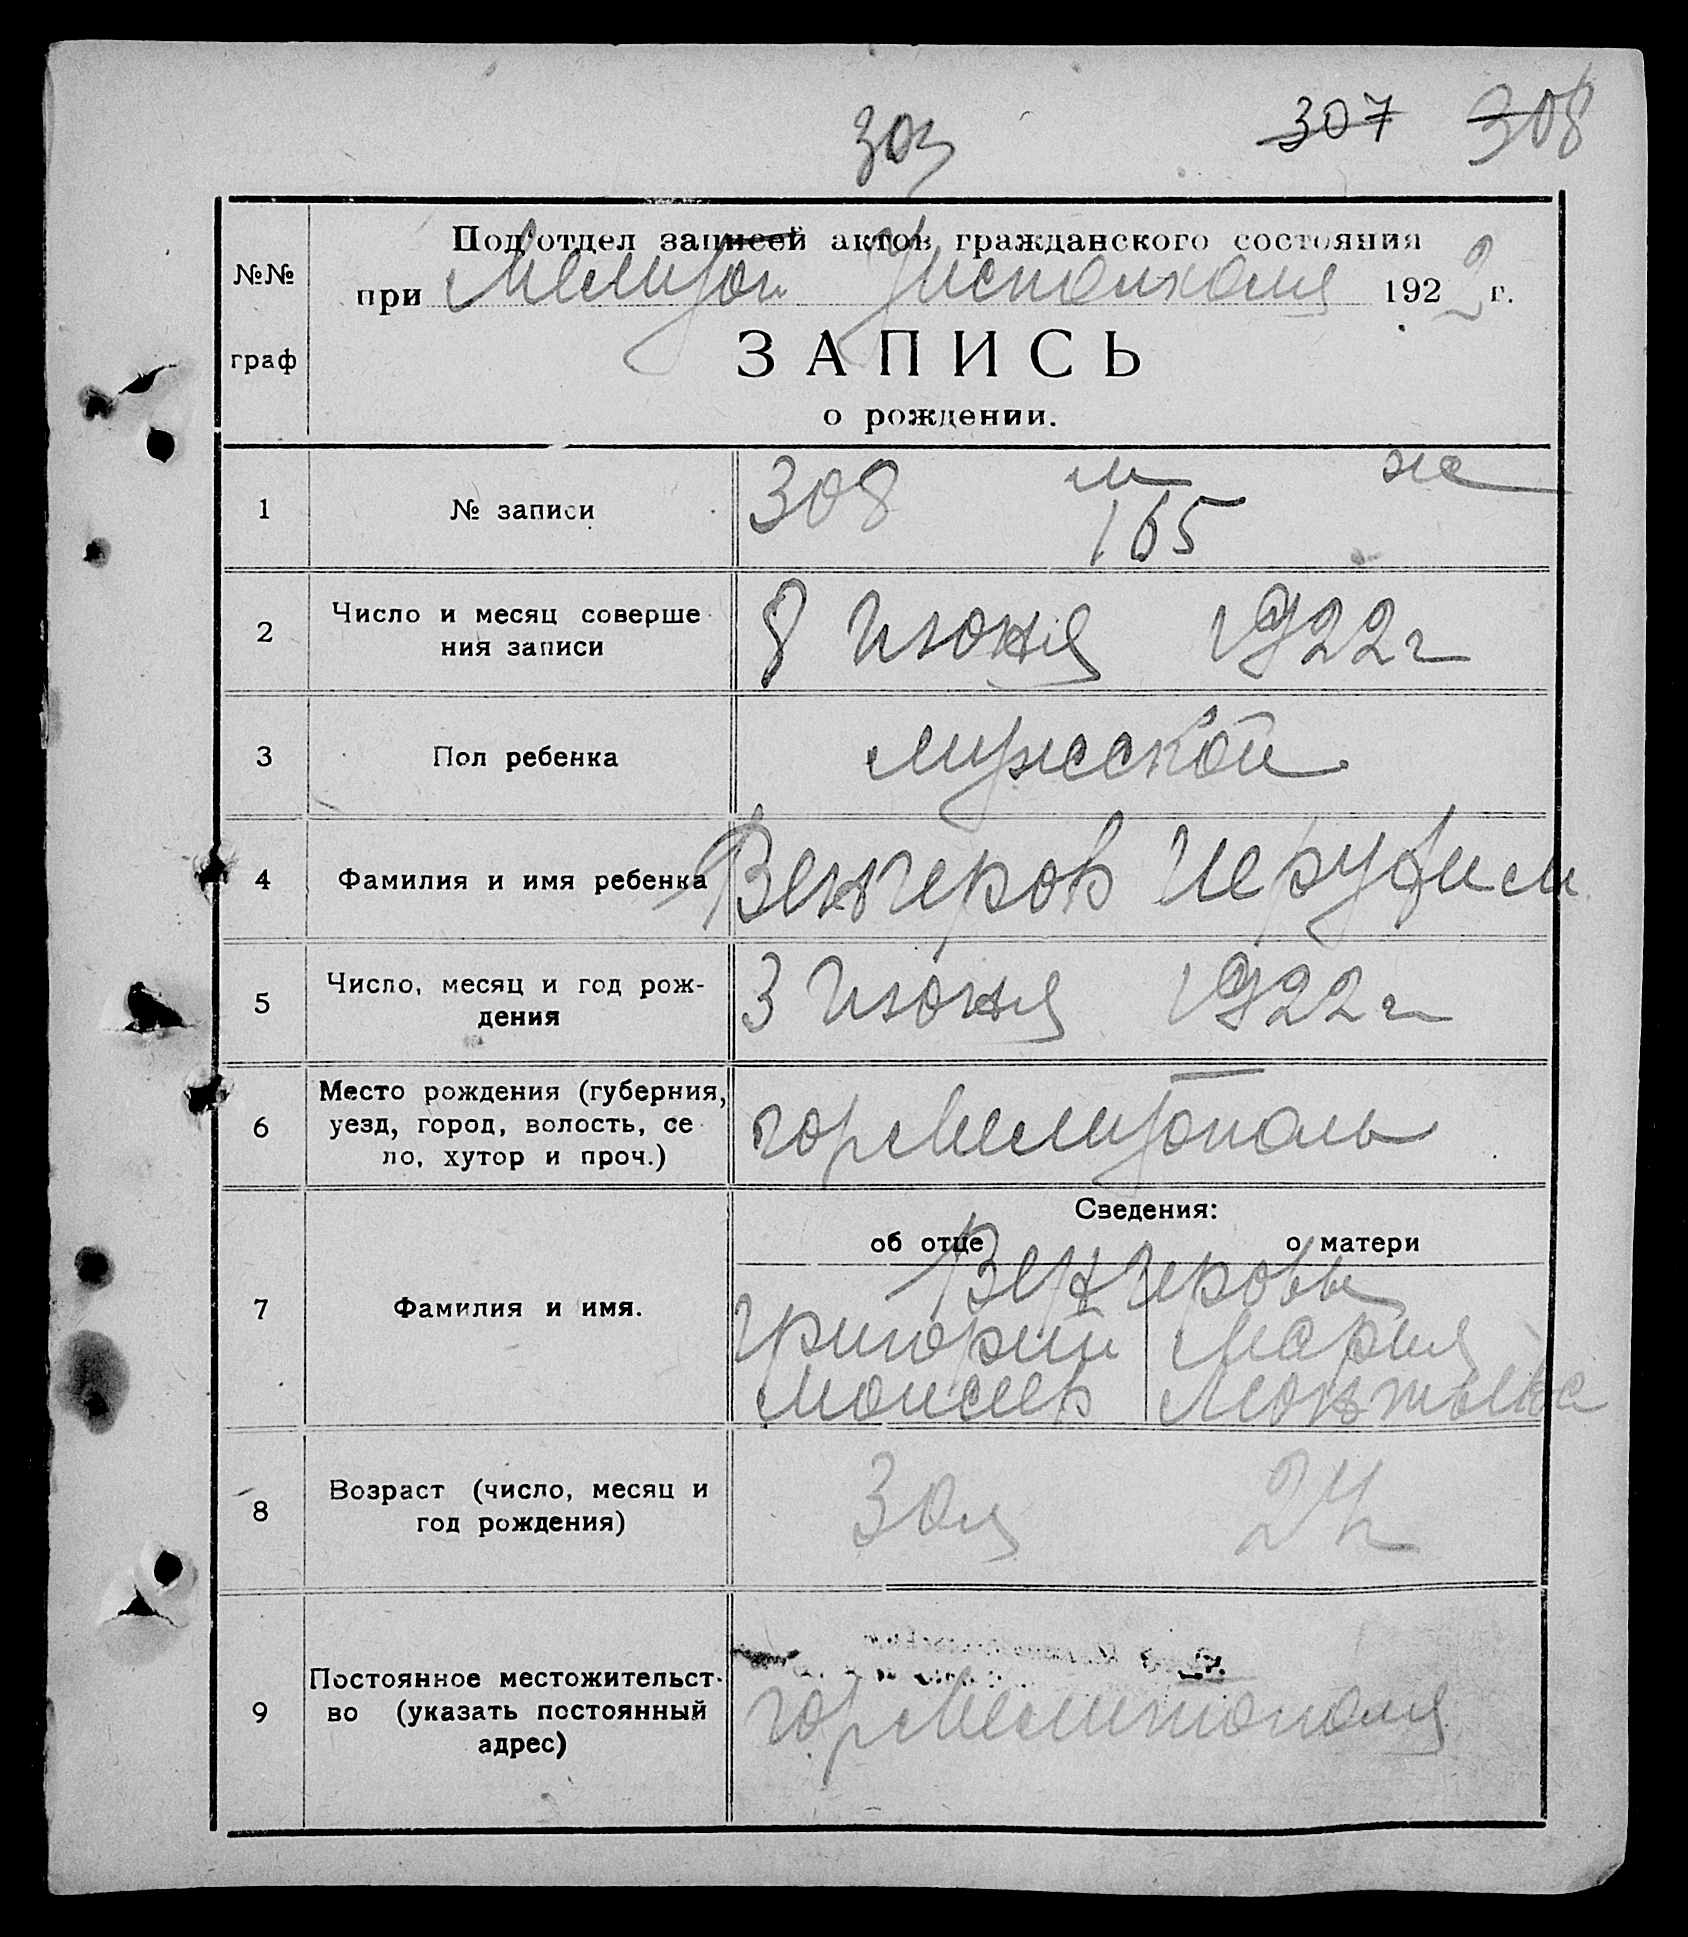 303 307 308
Под'отдел записей актов гражданского состояния
№№
при Мелитоп Уисполкома 1922 г.
граф
ЗАПИСЬ
о рождении.
1 № записи 308 м ж
165
2 Число и месяц соверше
ния записи
8 Июня 1922 г
3 Пол ребенка мужской
4 Фамилия и имя ребенка Венгеров Иеруфим
5 Число, месяц и год рож-
дения
3 Июня 1922 г
6 Место рождения (губерния,
уезд, город, волость, се
ло, хутор и проч.)
гор Мелитополь
Сведения:
об отце о матери
7 Фамилия и имя. Венгеровы
Григорий Мария
Моисеев
8 Возраст (число, месяц и
год рождения)
30 л 24
9 Постоянное местожительст-
во (указать постоянный
адрес)
гор Мелитополя